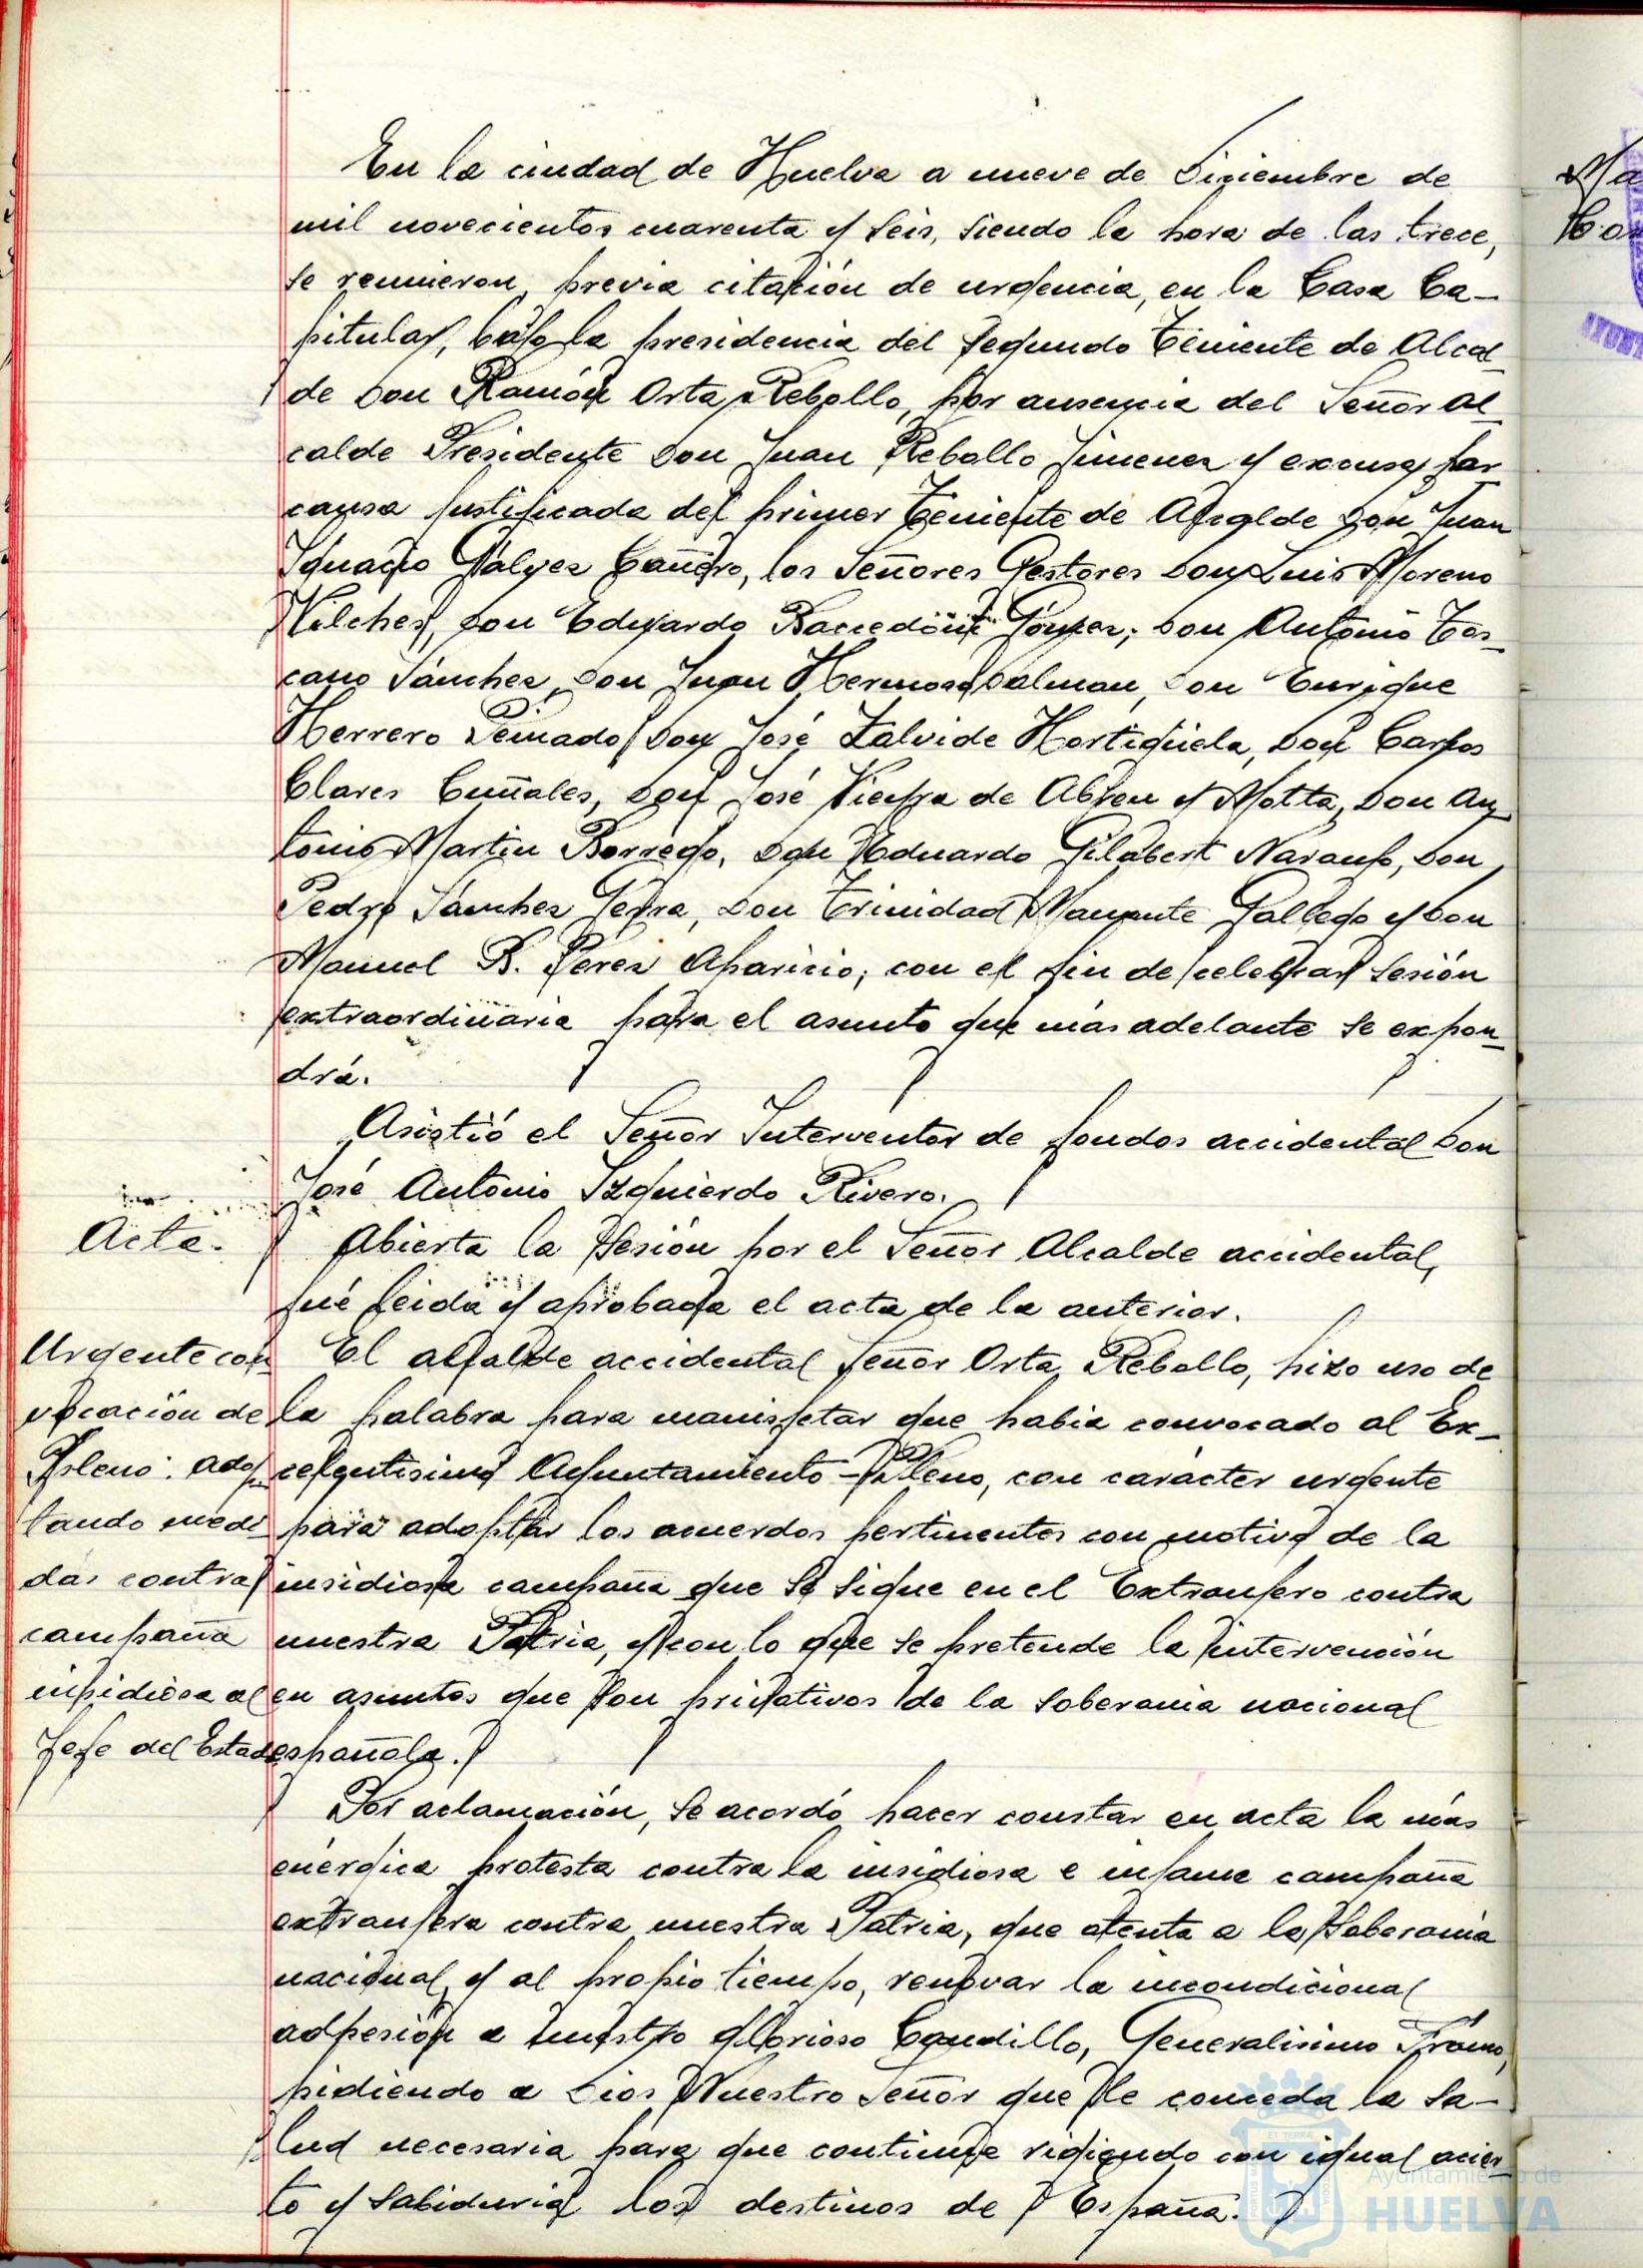 En la ciudad de Huelva a nueve de Diciembre de
mil novecientos cuarenta y seis, siendo la hora de las trece,
se reunieron, previa citación de urgencia, en la Casa Ca-
pitular, bajo la presidencia del Segundo Teniente de Alcal-
de Don Ramón Orta Rebollo, por ausencia del Señor Al-
calde Presidente Don Juan Rebollo Jimenez y excusa, por
causa justificada del primer Teniente de Alcalde Don Juan
Ignacio Gálvez Cañero, los Señores Gestores Don Luis Moreno
Vilches, Don Eduardo Gómez; Don Antonio Tos-
cano Sánchez, Don Juan Hermoso Dalman, Don Enrique
Herrero Peinado, Don José Zalvide Hortigüela, Don Carlos
Clares Cuñales, Don José Vieyra de Abreu y Motta, Don An-
tonio Martin Borrego, Don Eduardo Gilabert Naranjo, Don
Pedro Sánchez Don Trinidad Gallego y Don
Manuel B. Pérez Aparicio; con el fin de celebrar Sesión
extraordinaria para el asunto que más adelante se expon-
drá.
Asistió el Señor Interventor de fondos accidental Don
José Antonio Izquierdo Rivero.
Acta.
Abierta la Sesión por el Señor Alcalde accidental,
fué leida y aprobada el acta de la anterior.
Urgente con-
vocación de
Pleno: adop-
tando medi-
das contra
campaña
insidiosa al
Jefe del Estado
El alcalde accidental Señor Orta Rebollo, hizo uso de
la palabra para manisfetar que habia convocado al Ex-
celentisimo Ayuntamiento-Pleno, con carácter urgente
para adoptar los acuerdos pertinentes con motivo de la
insidiosa campaña que se sigue en el Extranjero contra
nuestra Patria, y con lo que se pretende la intervención
en asuntos que son privativos de la soberania nacional
española.
Por aclamación, se acordó hacer constar en acta la más
enérgica protesta contra la insidiosa e infame campaña
extranjera contra nuestra Patria, que atenta a la Soberania
nacional, y al propio tiempo, renovar la incondicional
adhesión a nuestro glorioso Caudillo, Generalisimo Franco,
pidiendo a Dios Nuestro Señor que le conceda la sa-
lud necesaria para que continúe rigiendo con igual acier-
to y Sabiduria los destinos de España.
Ayuntamiento de
HUELVA